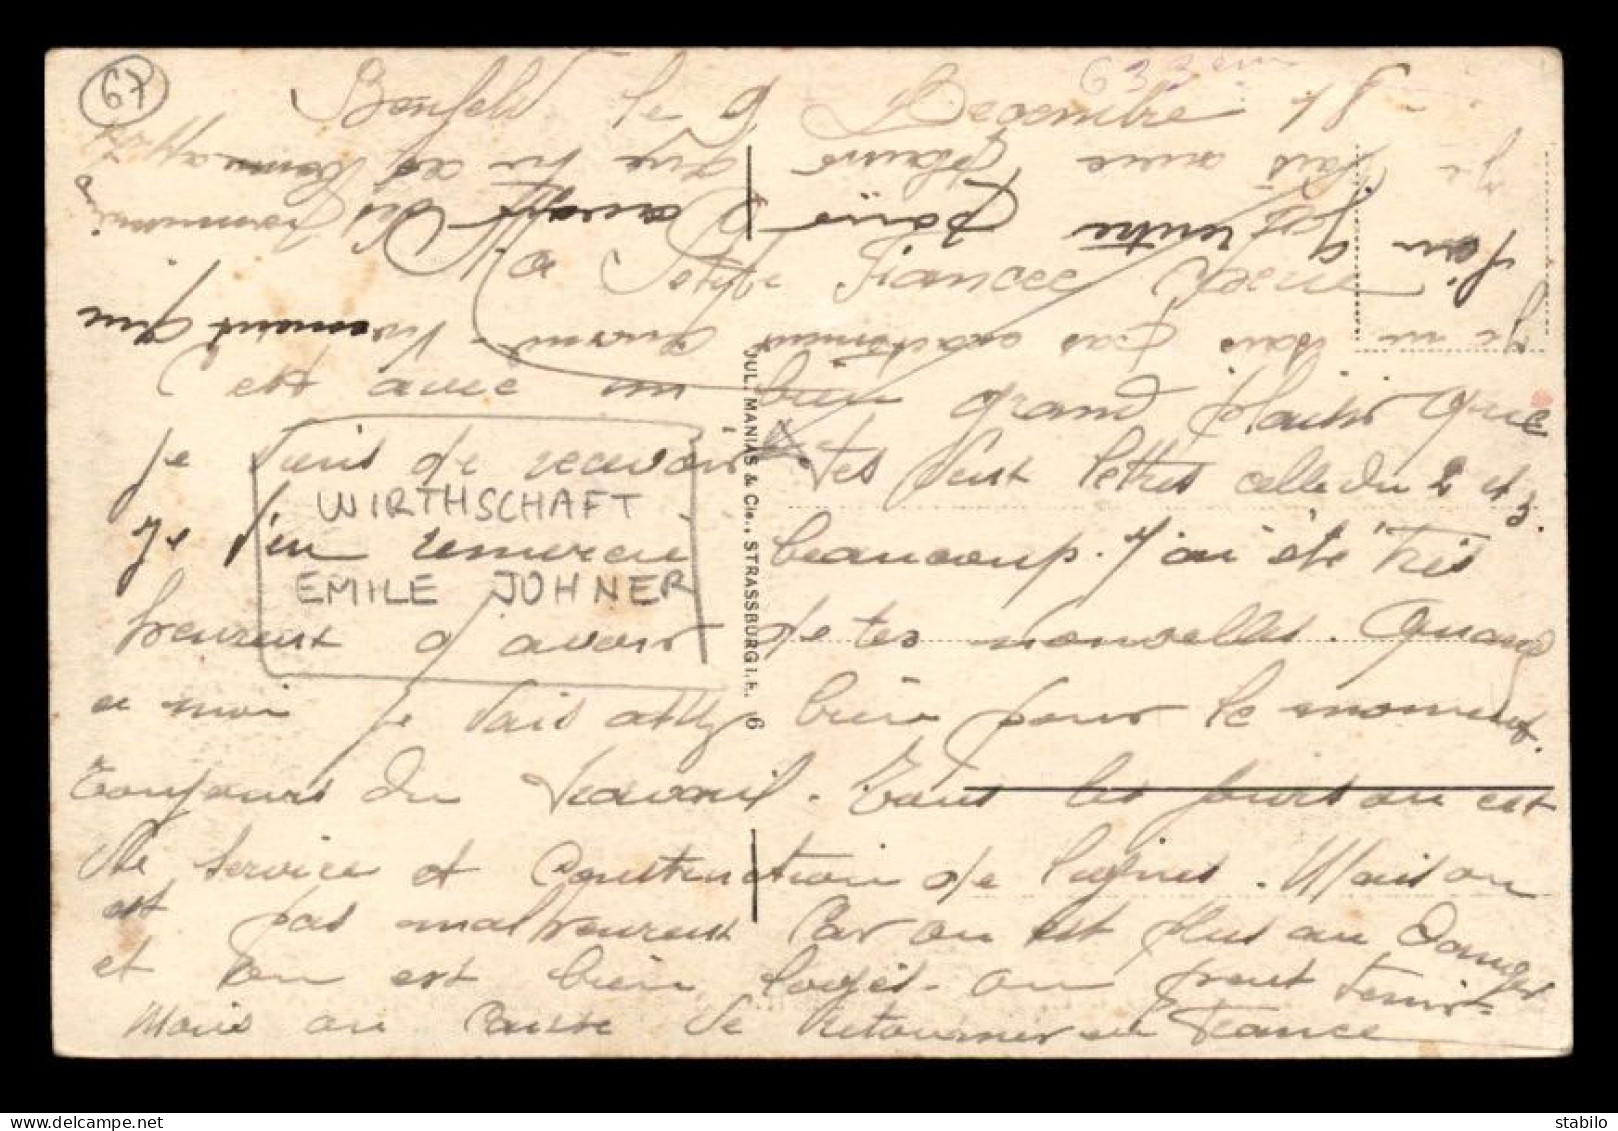 67
Benfeld le 6 Decembre 18
Ma Petite Fiancée
C'est avec un bien grand plaisir que
je viens de recevoir tes lettres celle du 2 et 3.
Je t'en remercie beaucoup. J'ai été très
heureux d'avoir de tes nouvelles. Quand
a moi je vais assez bien pour le moment.
Toujours du travail. Tous les jours on est
de service et Construction de lignes. Mais on
est pas malheureux Car on est plus au Danger
et on est bien logés. on peut tenir
Mais on Cause de retourner en France
Je ne sais pas exactement quand. Vivement que
l'on rentre
Je vais avec
WIRTHSCHAFT
EMILE JOHNER
JUL. MANIAS & Cie., STRASSBURG i. E. 6
delcampe.net
stabilo